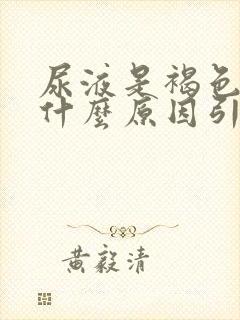 尿液是褐色
什麼原因引
黃毅清